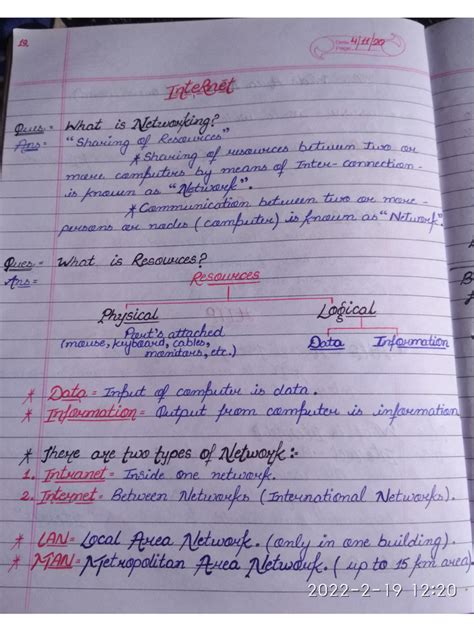 19.
Date 4/11/20
Page
Internet
Ques= What is Networking?
Ans= "Sharing of Resources"
* Sharing of resources between two or
more computers by means of Inter-connection-
is known as "Network".
* Communication between two or more-
persons or nodes (computer) is known as "Network".
Ques= What is Resources?
Ans= Resources
Physical Logical
Part's attached
(mouse, keyboard, cables,
monitors, etc.)
Data Information
* Data = Input of computer is data.
* Information = Output from computer is information
* There are two types of Network:-
1. Intranet = Inside one network.
2. Internet = Between Networks (International Networks).
* LAN= Local Area Network. (only in one building).
* MAN= Metropolitan Area Network. (up to 15 km area)
2022-2-19 12:20